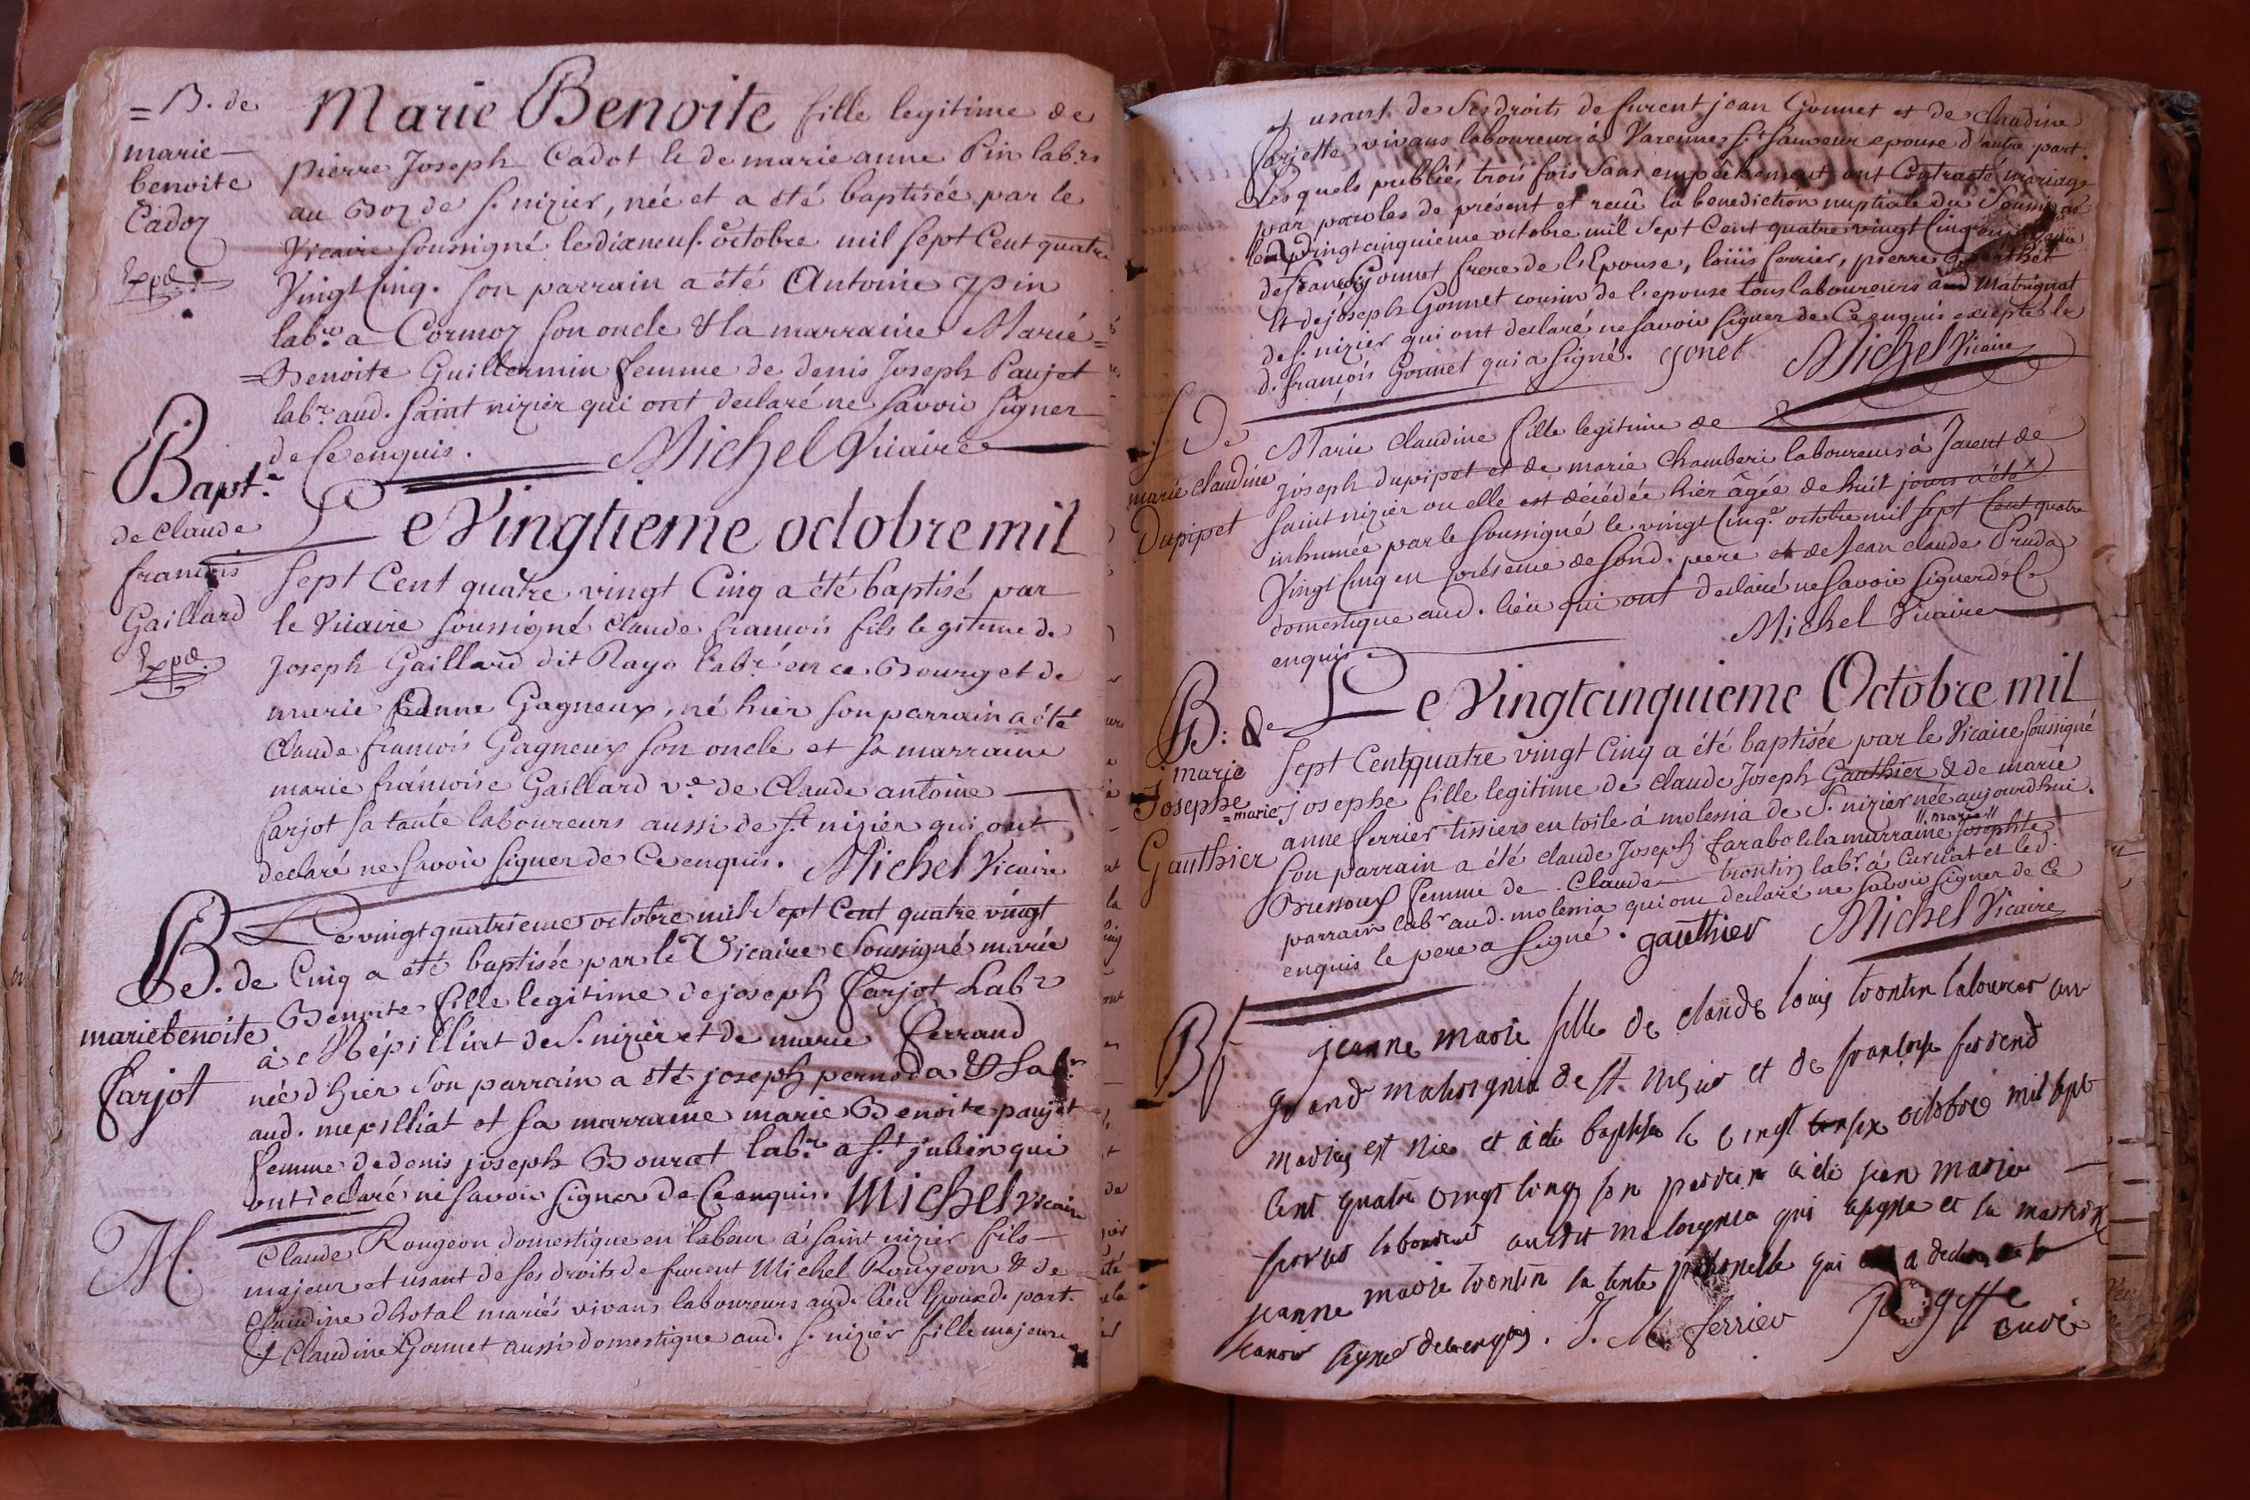 = B. de
marie
benoite
Cadoz
Expd.
Marie Benoite fille legitime de
pierre Joseph Cadot & de marie anne Pin lab.rs
au Boz de s.t nizier, née et a été baptisée par le
Vicaire soussigné le dixneuf octobre mil sept Cent quatre
Vingt Cinq. son parrain a été Antoine pin
lab.r a Cormoz son oncle & la marraine Marie =
= Benoite Guillermin femme de denis Joseph Paujet
lab.r aud. saint nizier qui ont declaré ne savoir signer
de Ce enquis. Michel Vicaire
Bapt.e
de Claude
francois
Gaillard
Expd.
Le Vingtieme octobre mil
sept Cent quatre vingt Cinq a été baptisé par
le Vicaire soussigné claude francois fils legitime de
Joseph Gaillard dit Rayo lab.r en ce Bourg et de
marie anne Gagneux, né hier son parrain a été
Claude francois Gagneux son oncle et sa marraine
marie francoise Gaillard v.e de Claude antoine
farjot sa tante laboureurs aussi de s.t nizier qui ont
declaré ne savoir signer de Ce enquis. Michel Vicaire
B. de
marie benoite
farjot
Le vingt quatrieme octobre mil sept Cent quatre vingt
Cinq a été baptisée par le Vicaire soussigné marie
Benoite fille legitime de joseph farjot Lab.r
à Népilliat de s.t nizier et de marie ferraud
née d'hier son parrain a été joseph pernoda & lab.r
aud. nepilliat et sa marraine marie Benoite paujet
femme de denis joseph Bourat lab.r a s.t julien qui
ont declaré ne savoir signer de Ce enquis. Michel Vicaire
M.
Claude Rougeon domestique en labeur à saint nizier fils
majeur et usant de ses droits de furent Michel Rougeon & de
Claudine dhotal mariés vivans laboureurs aud. lieu Epoux d. part.
& Claudine Gonnet aussi domestique aud. s.t nizier fille majeure
et usant de ses droits de furent jean Gonnet et de claudine
farjette vivans laboureurs à Varennes s.t sauveur epouse d'autre part.
Lesquels publiés trois fois sans empêchement ont Contracté mariage
par paroles de présent et reçû la benediction nuptiale du soussigné
le vingt cinquieme octobre mil sept Cent quatre vingt Cinq
de francois Gonnet frere de l'Epouse, loüis ferrier, pierre
& de joseph Gonnet cousin de l'epouse tous laboureurs aud Matrignat
de s.t nizier qui ont declaré ne savoir signer de Ce enquis excepté le
d. françois Gonnet qui a signé. gonet Michel Vicaire
S. De
marie claudine
Dupipet
Marie Claudine fille legitime de
joseph dupipet et de marie Chamberi laboureurs à Jarent de
saint nizier ou elle est décédée hier âgée de huit jours a été
inhumée par le soussigné le vingt Cinq.e octobre mil sept Cent quatre
Vingt Cinq en présence de sond. pere et de Jean claude Pruda
domestique aud. lieu qui ont declaré ne savoir signer de Ce
enquis Michel Vicaire
B: de
marie
Josephe
Gauthier
Le Vingtcinquieme Octobre mil
sept Cent quatre vingt Cinq a été baptisée par le Vicaire soussigné
= marie josephe fille legitime de claude Joseph Gauthier & de marie
anne ferrier tissiers en toile à molessia de s.t nizier née aujourdhui.
son parrain a été claude Joseph farabole la marraine "marie" josephte
Brissoux femme de Claude trontin lab.r à Curciat et led.
parrain lab.r aud. molessia qui ont declaré ne savoir signer de Ce
enquis le pere a signé. gauthier Michel Vicaire
B f
jeanne marie fille de claude louis trontin laboureur au
grand malorgnia de s.t nizier et de francoise ferrend
mariés est née et a été baptisée le vingt six octobre mil sept
Cent quatre vingt Cinq son parrain a été jean marie
ferrier laboureur audit malorgnia qui a signé et la marraine
jeanne marie trontin sa tante paternelle qui a declaré ne
scavoir signer de ce enquis. J. M. ferrier
curé